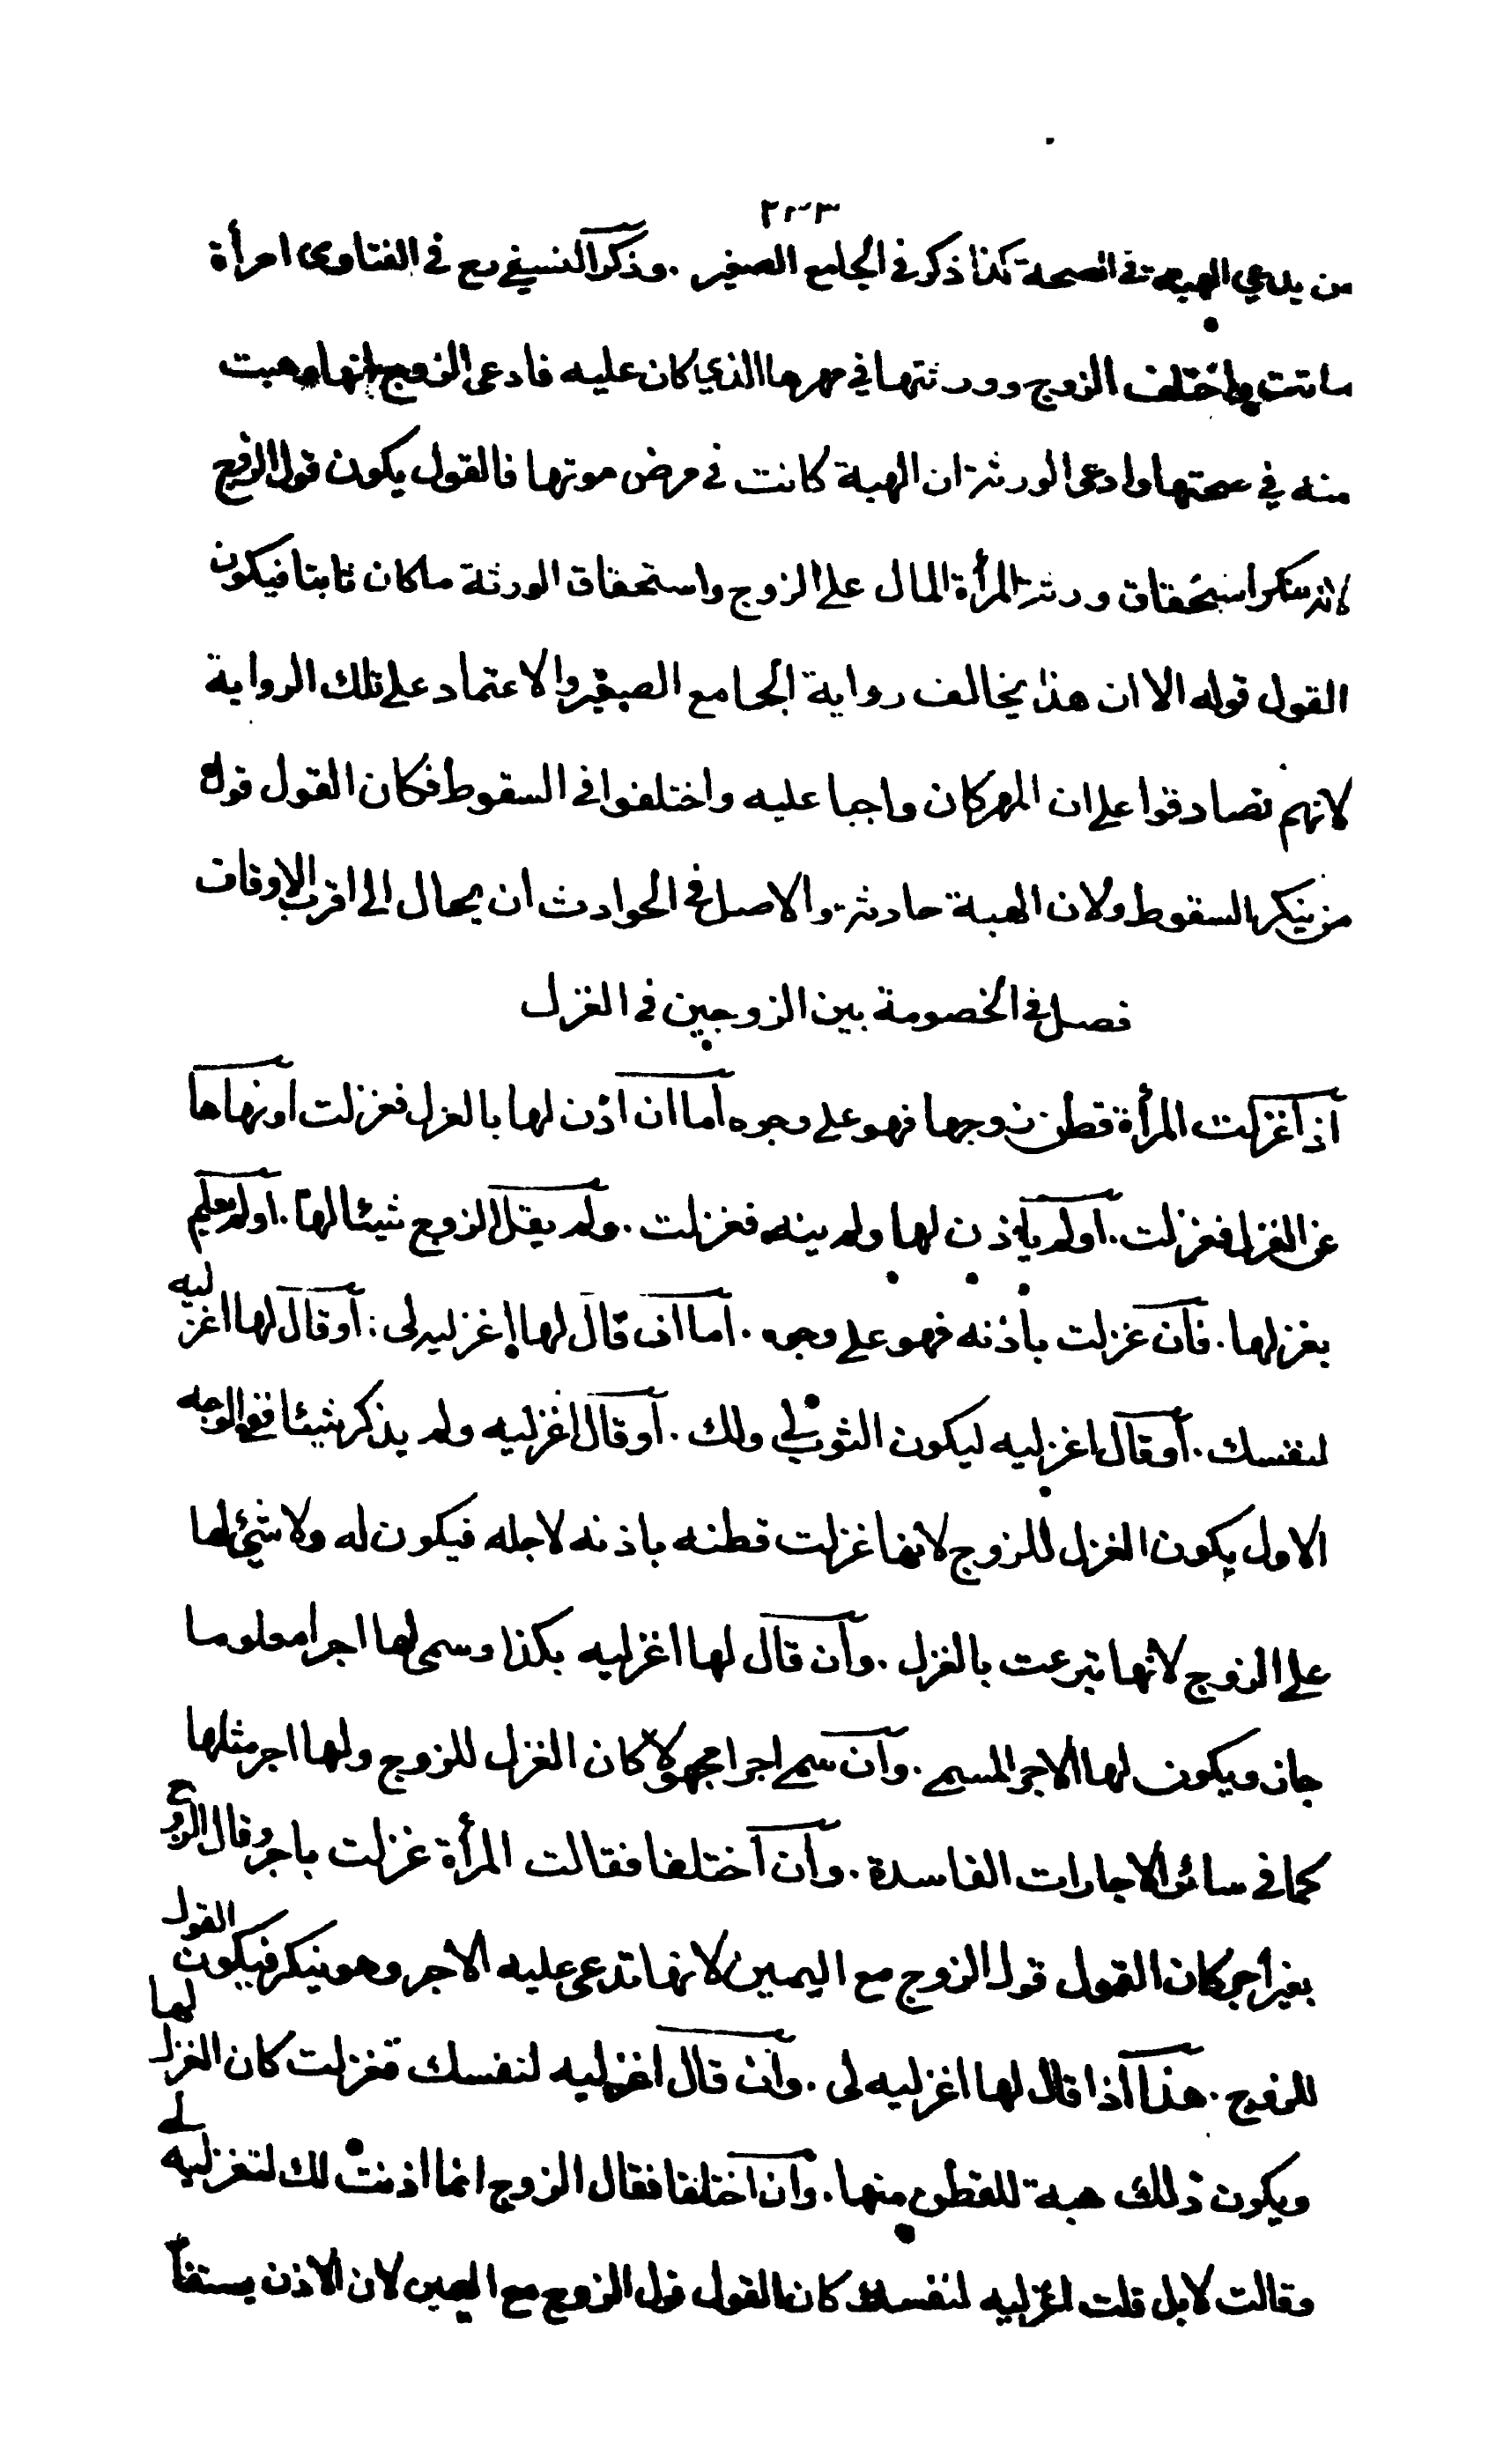 من يدعي الهبة في الصحة كذا ذكر في الجامع الصغير . وذكر النسفي رح في الفتاوى امرأة
ماتت واختلف الزوج وورثتها في مهرها الذي كان عليه فادعى الزوج انها وهبت
منه في صحتها وادعى الورثة ان الهبة كانت في مرض موتها فالقول يكون قول الزوج
لانه ينكر استحقاق ورثة المرأة المال على الزوج واستحقاق الورثة ما كان ثابتا فيكون
القول قوله الا ان هذا يخالف رواية الجامع الصغير والاعتماد على تلك الرواية
لانهم تصادقوا على ان المهر كان واجبا عليه واختلفوا في السقوط فكان القول قول
من ينكر السقوط ولان الهبة حادثة والاصل في الحوادث ان يحال الى اقرب الاوقات
فصل في الخصومة بين الزوجين في الغزل
اذا غزلت المرأة قطن زوجها فهو على وجوه اما ان اذن لها بالغزل فغزلت او نهاها
عن الغزل فغزلت . او لم ياذن لها ولم ينه فغزلت . ولم يقل الزوج شيئا لها . او لم يعلم
بغزلها . فان غزلت باذنه فهو على وجوه . اما ان قال لها اغزليه لى : او قال لها اغزليه
لنفسك . او قال اغزليه ليكون الثوب لي ولك . او قال اغزليه ولم يذكر شيئا ففي الوجه
الاول يكون الغزل للزوج لانها غزلت قطنه باذنه لاجله فيكون له ولا شيئ لها
على الزوج لانها تبرعت بالغزل . وان قال لها اغزليه بكذا وسمى لها اجرا معلوما
جاز ويكون لها الاجر المسمى . وان سمى اجرا مجهولا كان الغزل للزوج ولها اجر مثلها
كما في سائر الاجارات الفاسدة . وان اختلفا فقالت المرأة غزلت باجر وقال الزوج
بغير اجر كان القول قول الزوج مع اليمين لانها تدعى عليه الاجر وهو ينكر فيكون القول
للزوج . هذا اذا قال لها اغزليه لى . وان قال اغزليه لنفسك فغزلت كان الغزل لها
ويكون ذلك هبة للقطن منها . وان اختلفا فقال الزوج انما اذنت لك لتغزليه لي
وقالت لا بل قلت اغزليه لنفسك كان القول قول الزوج مع اليمين لان الاذن يستفا